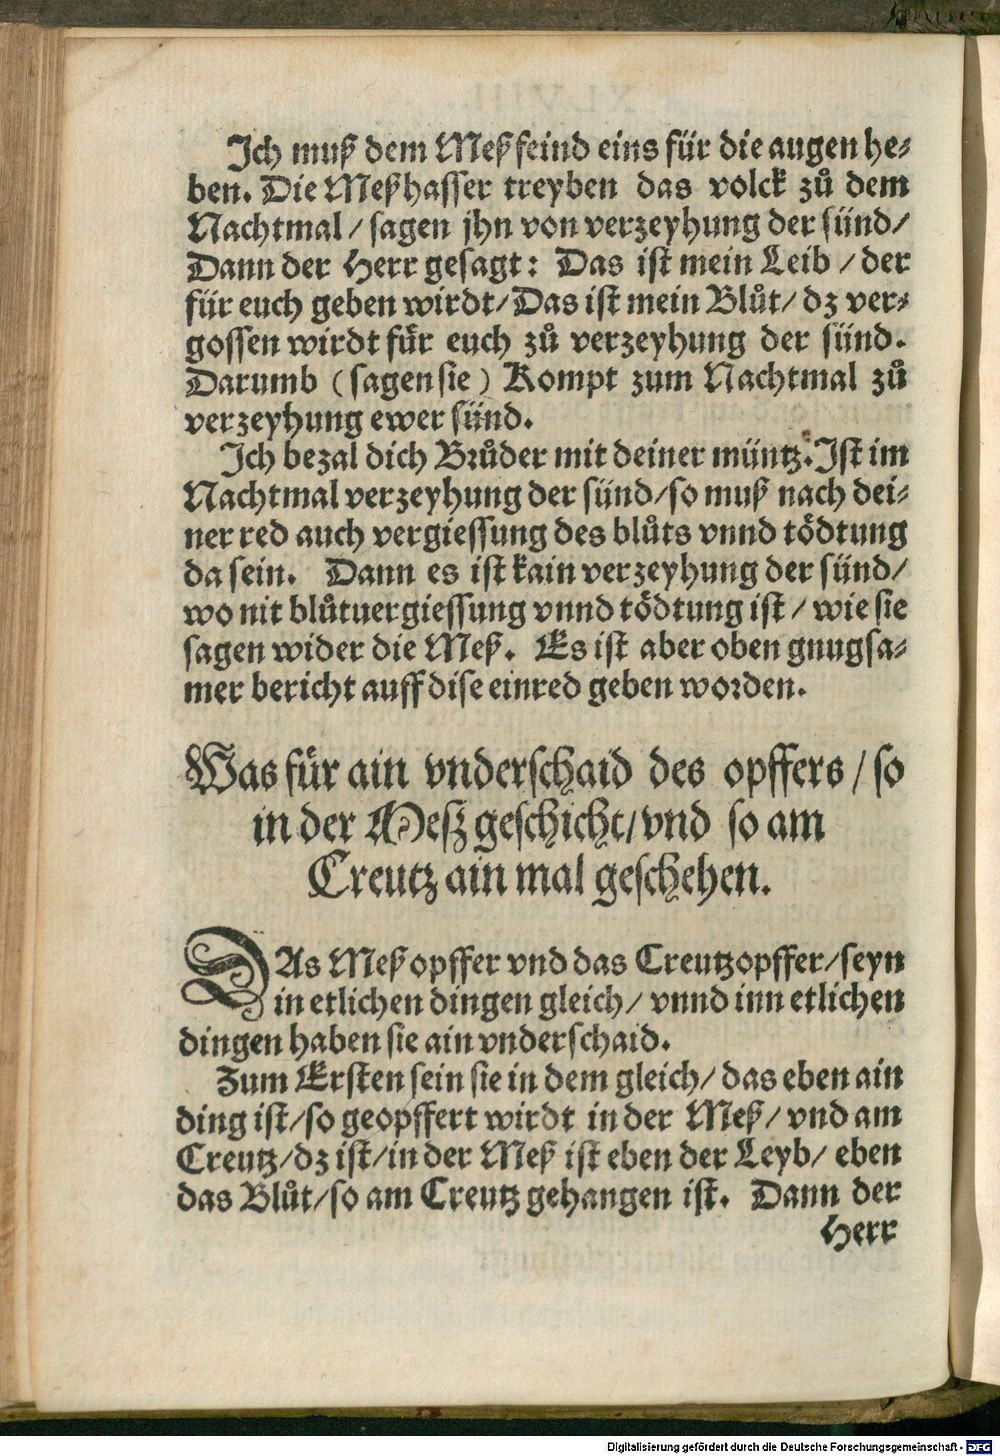 Ich muß dem Meßfeind eins für die augen he⸗
ben. Die Meßhasser treyben das volck zů dem
Nachtmal / sagen jhn von verzeyhung der sünd /
Dann der Herr gesagt: Das ist mein Leib / der
für euch geben wirdt / Das ist mein Blůt / dz ver⸗
gossen wirdt für euch zů verzeyhung der sünd.
Darumb (sagen sie) Kompt zum Nachtmal zů
verzeyhung ewer sünd.
Ich bezal dich Brůder mit deiner müntz. Ist im
Nachtmal verzeyhung der sünd / so muß nach dei⸗
ner red auch vergiessung des blůts vnnd tödtung
da sein. Dann es ist kain verzeyhung der sünd /
wo nit blůtuergiessung vnnd tödtung ist / wie sie
sagen wider die Meß. Es ist aber oben gnugsa⸗
mer bericht auff dise einred geben worden.
Was für ain vnderschaid des opffers / so
in der Mesz geschicht / vnd so am
Creutz ain mal geschehen.
DAs Meßopffer vnd das Creutzopffer / seyn
in etlichen dingen gleich / vnnd inn etlichen
dingen haben sie ain vnderschaid.
Zum Ersten sein sie in dem gleich / das eben ain
ding ist / so geopffert wirdt in der Meß / vnd am
Creutz / dz ist / in der Meß ist eben der Leyb / eben
das Blůt / so am Creutz gehangen ist. Dann der
Herr
Digitalisierung gefördert durch die Deutsche Forschungsgemeinschaft - DFG